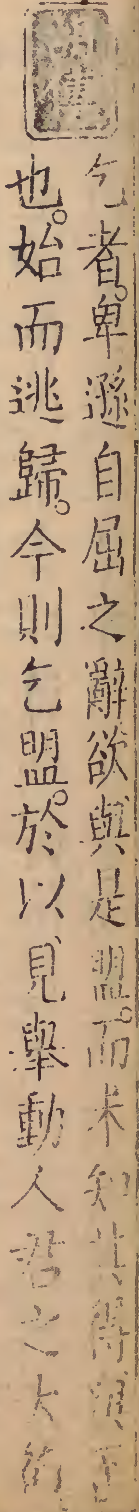 乞者。卑遜自屈之辭欲與是盟。而未知其得與否
也。始而逃歸。今則乞盟。於以見舉動人君之大節